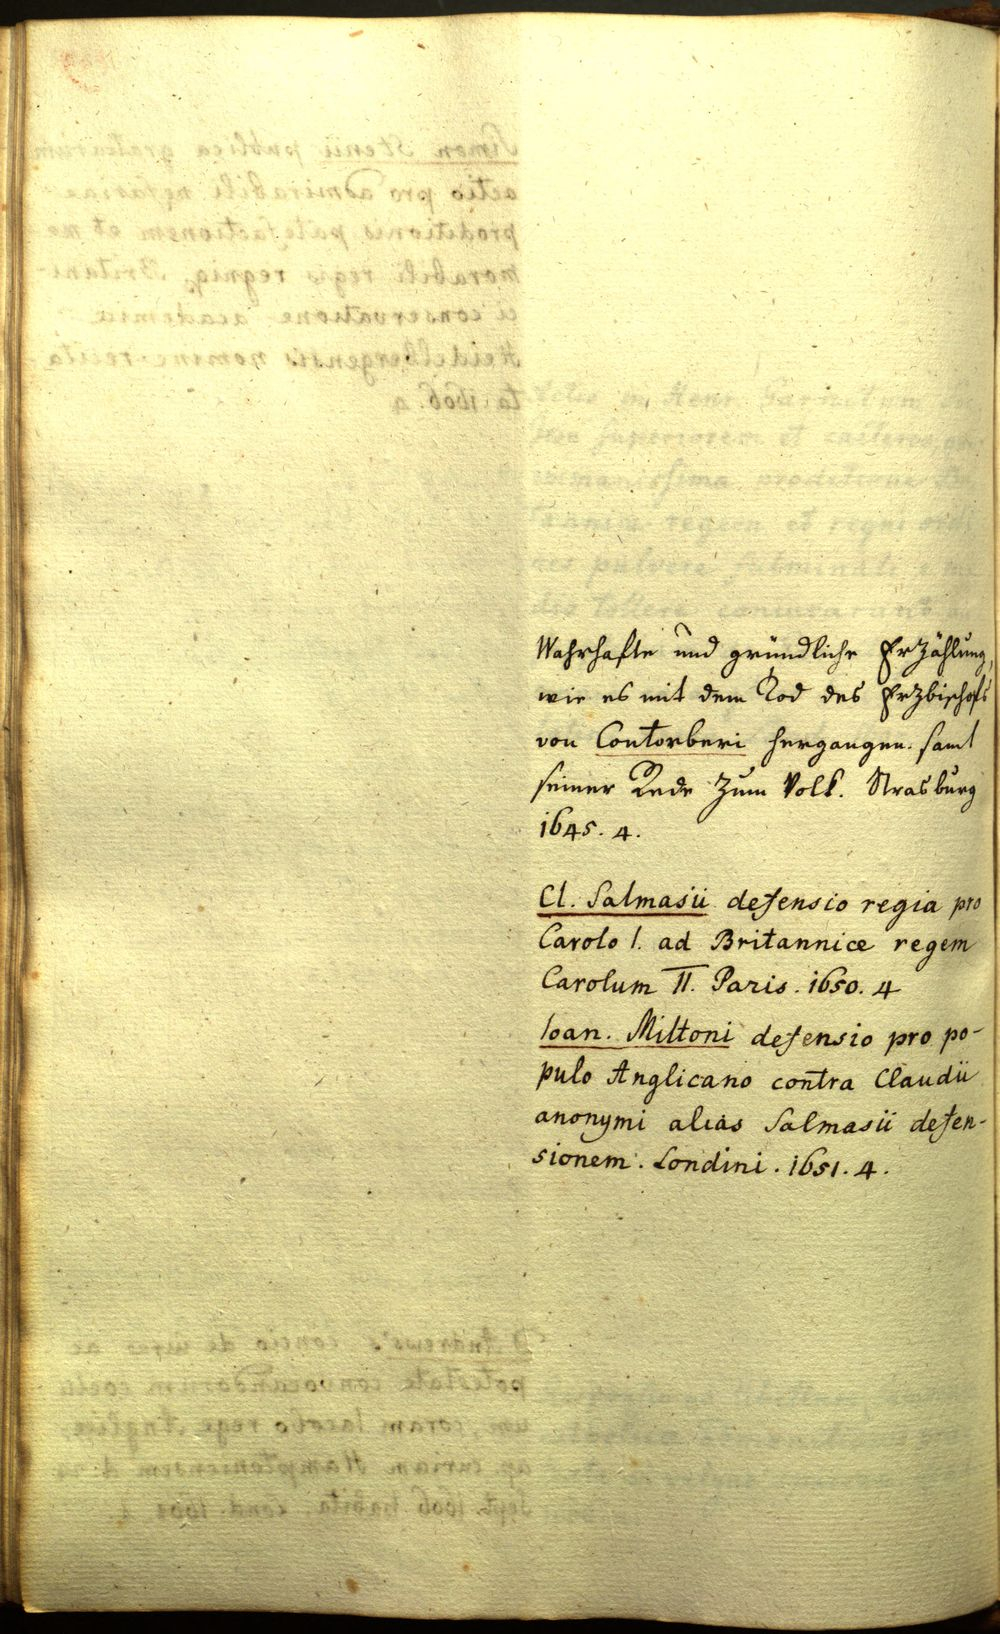 Wahrhafte und gründliche Erzählung,
wie es mit dem Tod des Erzbischofs
von Contorberi hergangen. samt
seiner Rede zum Volk. Strasburg
1645. 4.
Cl. Salmasii defensio regia pro
Carolo I. ad Britannice regem
Carolum II. Paris. 1650. 4
Ioan. Miltoni defensio pro po-
pulo Anglicano contra Claudii
anonymi alias Salmasii defen-
sionem. Londini. 1651. 4.